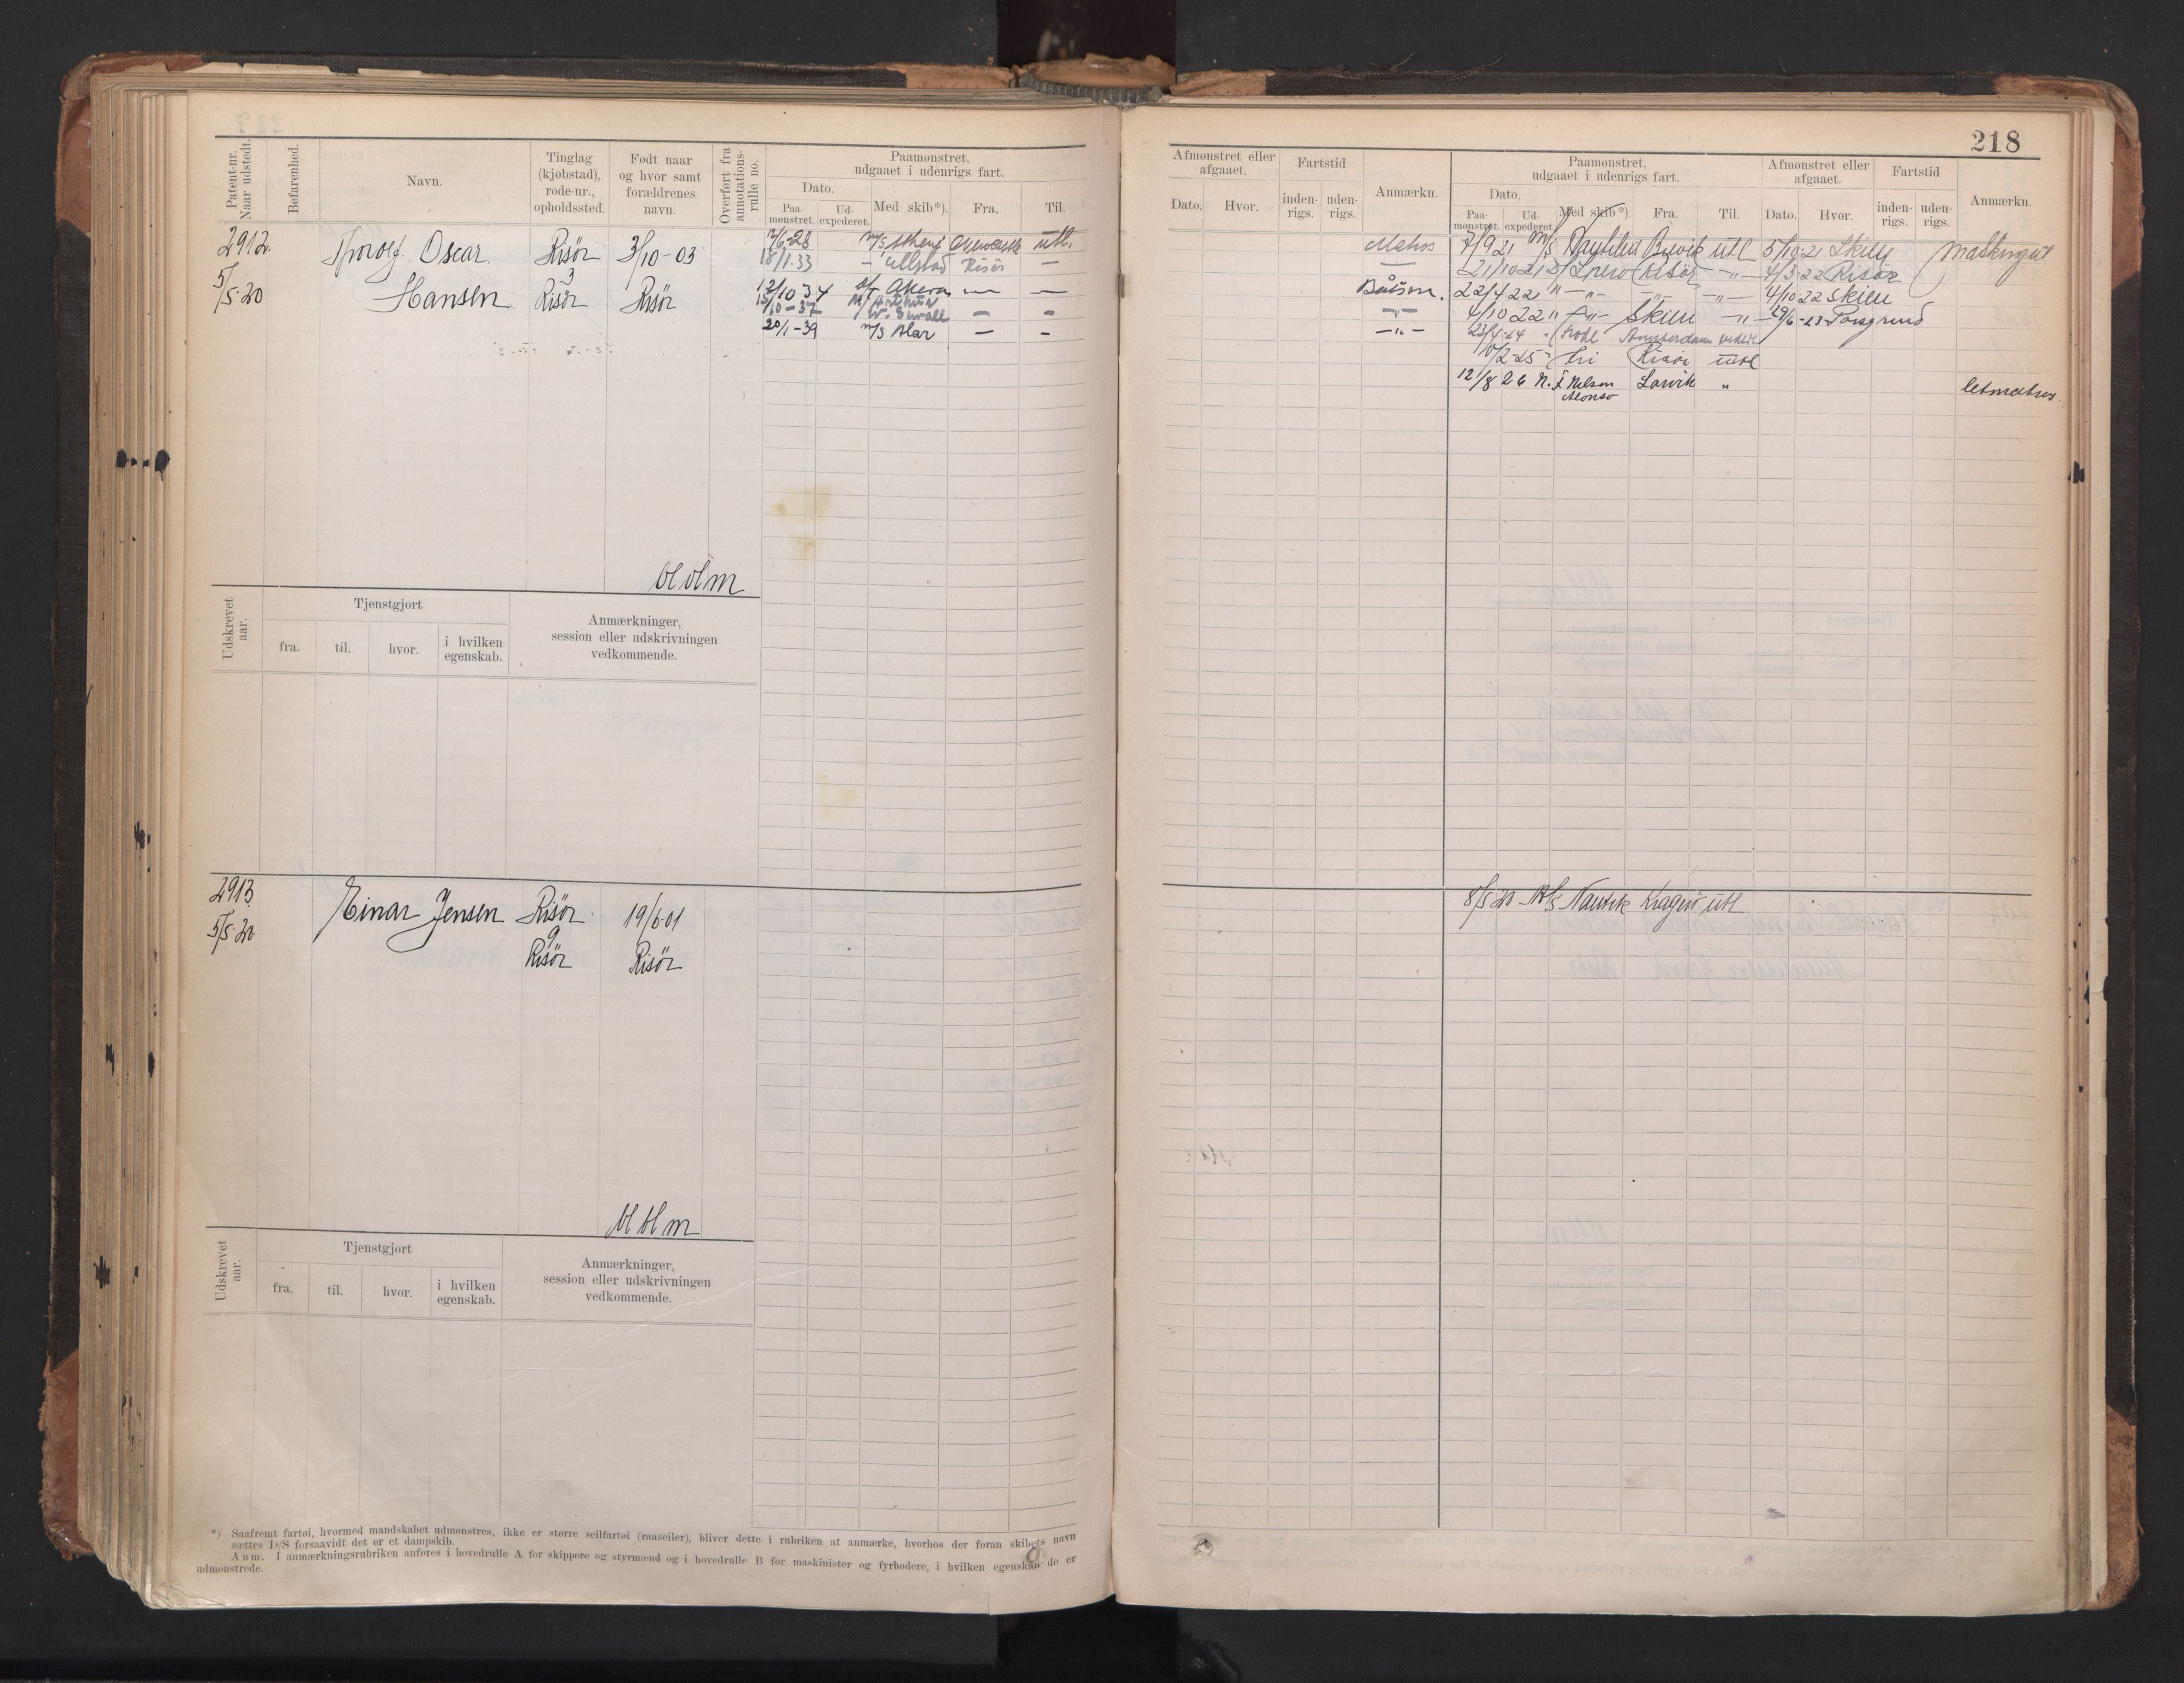 218
Patent-nr.
Naar udstedt.
Befarenhed.
Navn.
Tinglag
(kjøbstad),
rode-nr.,
opholdssted.
Født naar
og hvor samt
forældrenes
navn.
Overført fra
annotations-
rulle no.
Paamønstret,
udgaaet i udenrigs fart.
Dato.
Paa-
mønstret.
Ud-
expederet.
Med skib*).
Fra.
Til.
2912.
5/5-20
Thorolf Oscar
Hansen
Risör
3
Risör
3/10-03
Risör
12/6-28 m/s utl.
18/1.33 — Ullstad Risör —
12/10 34 Akera — —
15/10-37 — —
20/1-39 m/s Alar — —
bl bl m
Udskrevet
aar.
Tjenstgjort
fra.
til.
hvor.
i hvilken
egenskab.
Anmærkninger,
session eller udskrivningen
vedkommende.
2913.
5/5-20
Einar Jensen
Risör
9
Risör
19/6-01
Risör
bl bl m
Udskrevet
aar.
Tjenstgjort
fra.
til.
hvor.
i hvilken
egenskab.
Anmærkninger,
session eller udskrivningen
vedkommende.
*) Saafremt fartøi, hvormed mandskabet udmønstres, ikke er større seilfartøi (raaseiler), bliver dette i rubriken at anmærke, hvorhos der foran skibets navn
sættes D/S forsaavidt det er et dampskib.
Anm. I anmærkningsrubriken anføres i hovedrulle A for skippere og styrmænd og i hovedrulle B for maskinister og fyrbødere, i hvilken egenskab de er
udmønstrede.
Afmønstret eller
afgaaet.
Dato.
Hvor.
Fartstid
inden-
rigs.
uden-
rigs.
Anmærkn.
Paamønstret,
udgaaet i udenrigs fart.
Dato.
Paa-
mønstret.
Ud-
expederet.
Med skib*).
Fra.
Til.
Afmønstret eller
afgaaet.
Dato.
Hvor.
Fartstid
inden-
rigs.
uden-
rigs.
Anmærkn.
Matros 7/9 21 m/s Nautilus Brevik utl 5/10-21 Skien
— 21/10 21 Risör -„- 4/3 22 Risör
Båtsm. 22/4 22 „ -„- -„- -„- 4/10 22 Skien
-„- 4/10 22 „ -„- Skien -„- 29/6-23 Porsgrund
-„- 23/4-24 Amsterdam
10/2-25 Risör utl
12/8 26 Nelson Larvik „ letmatros
Alonso
8/5 20 M/S Nautik Kragerö utl